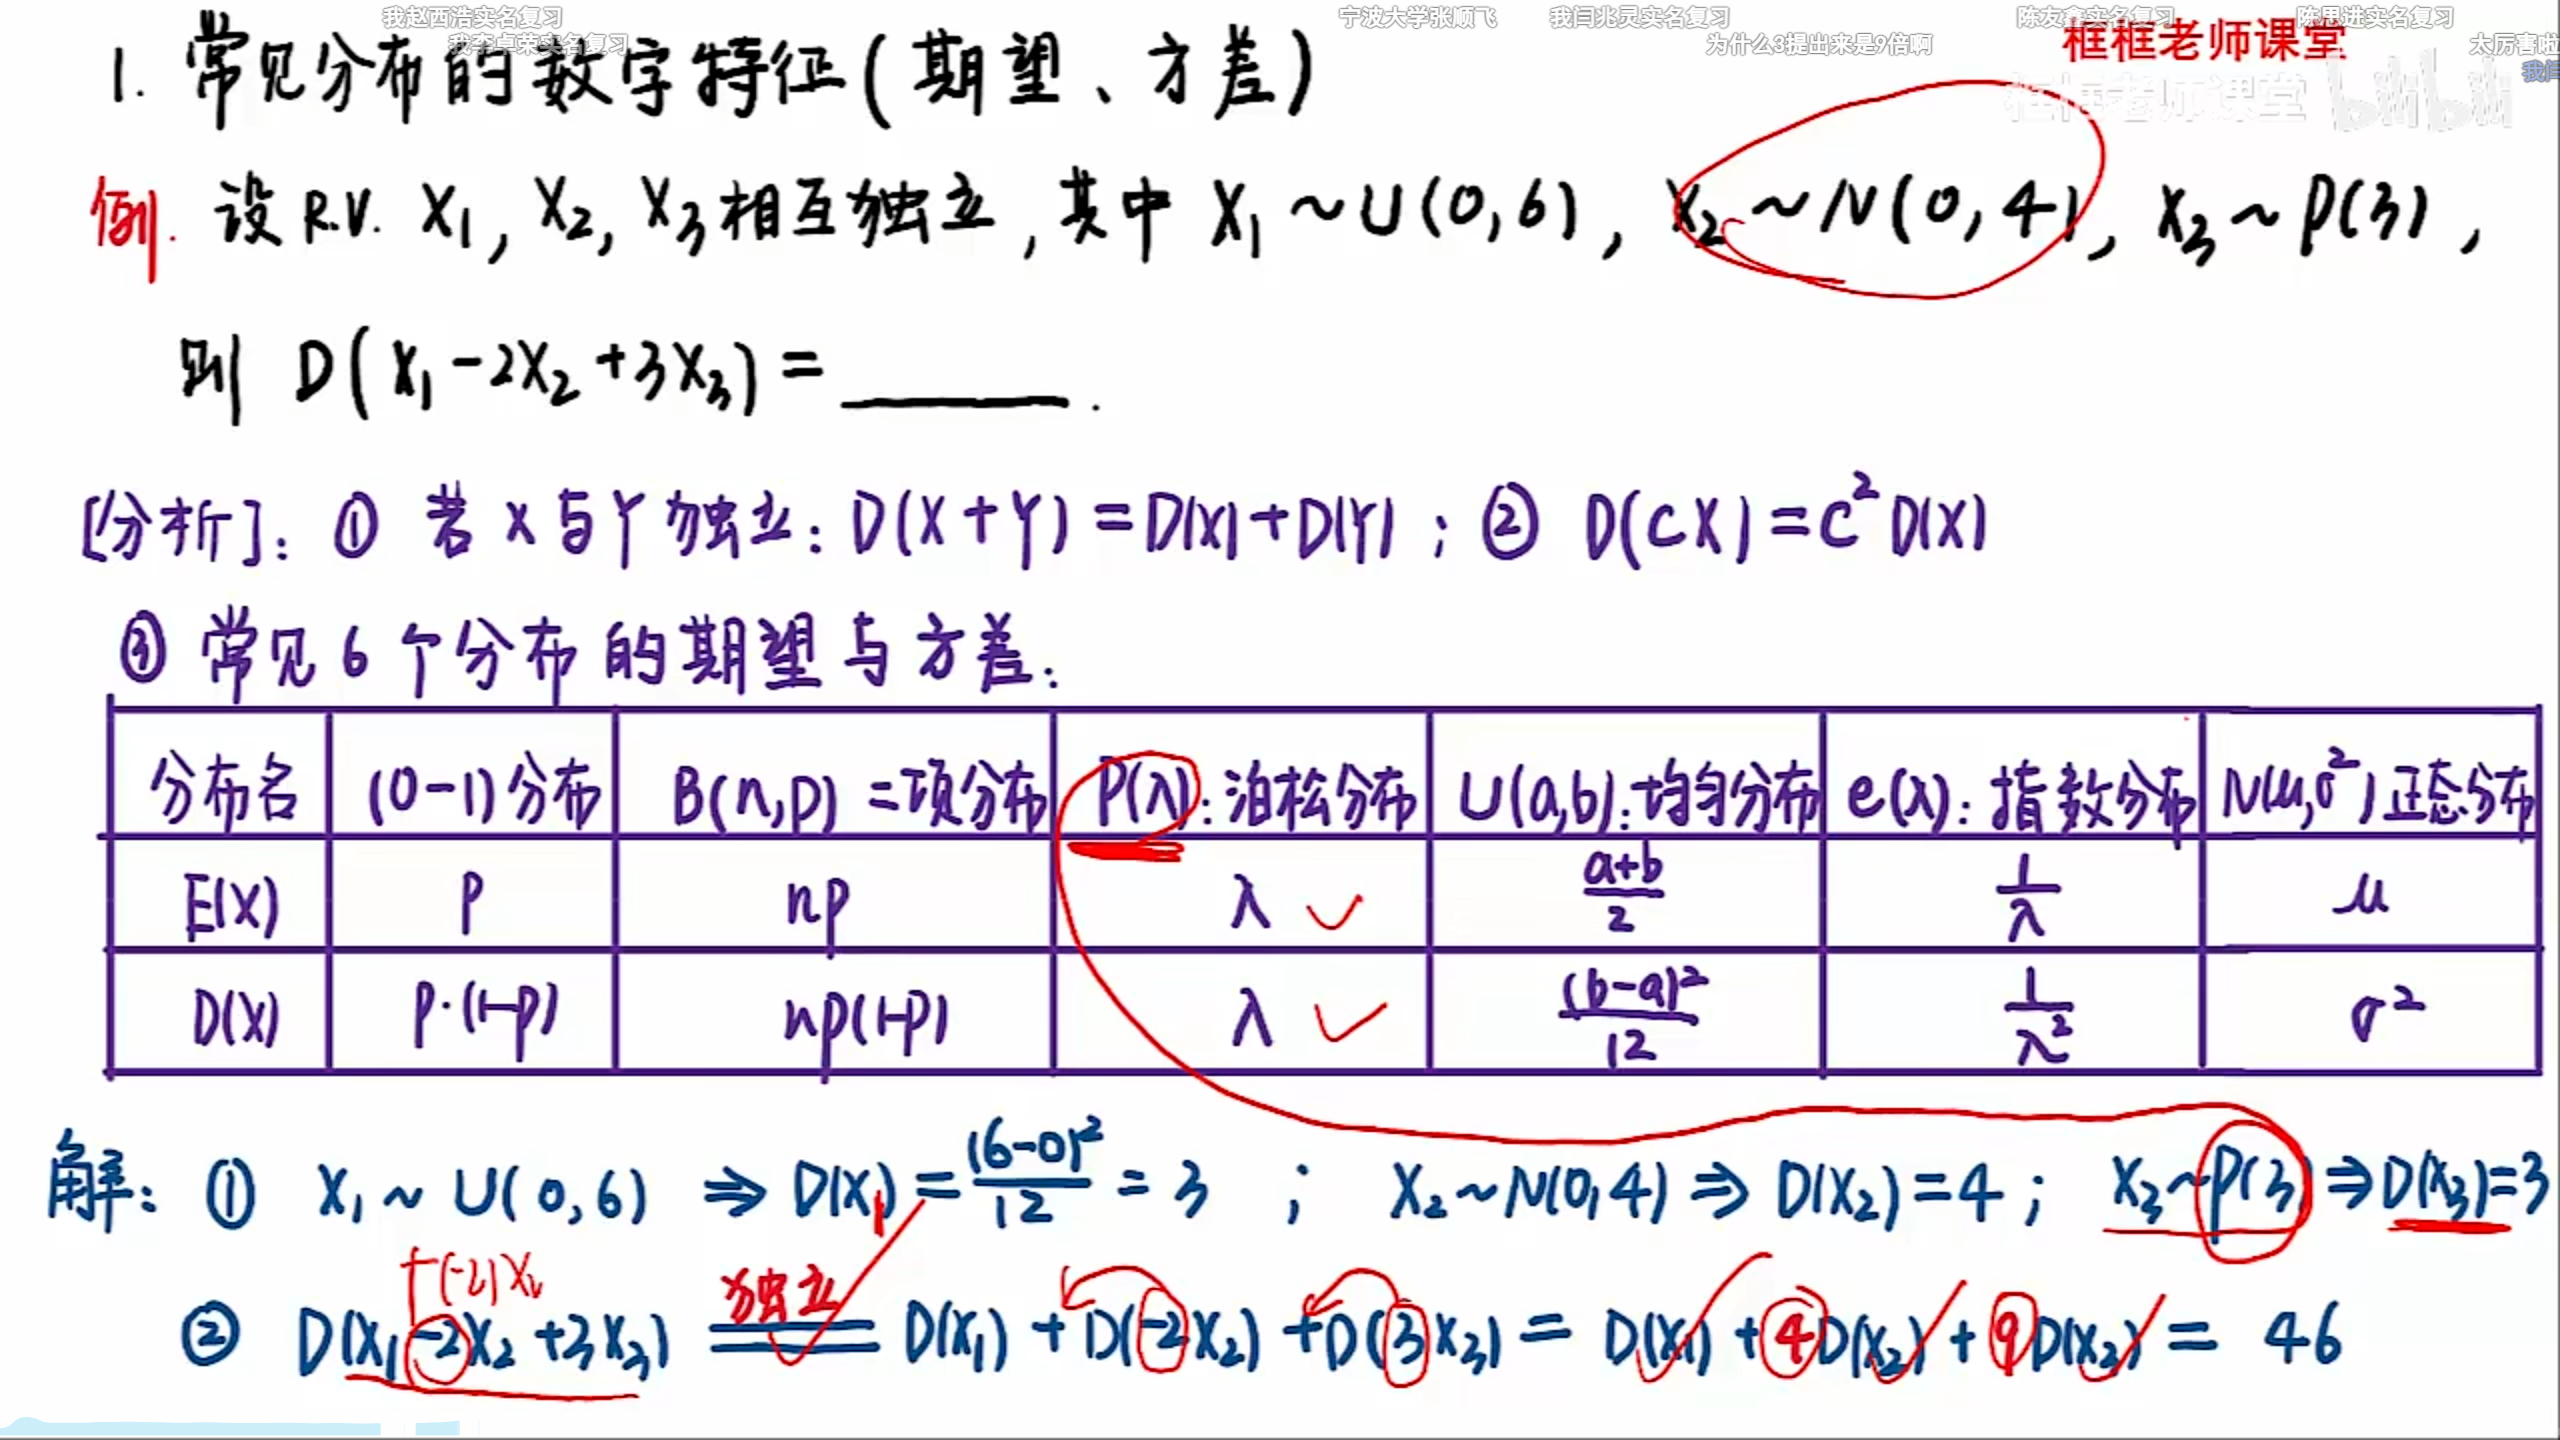 我赵西浩实名复习 宁波大学张顺飞 我闫兆灵实名复习 陈友鑫实名复习 陈思进实名复习
我李卓荣实名复习 为什么3提出来是9倍啊 太厉害啦
框框老师课堂
框框老师课堂 bilibili
1. 常见分布的数字特征(期望、方差)
例. 设R.V. X₁, X₂, X₃相互独立, 其中 X₁~U(0,6), X₂~N(0,4), X₃~P(3),
则 D(X₁-2X₂+3X₃)=______.
[分析]: ① 若X与Y独立: D(X+Y)=D(X)+D(Y); ② D(CX)=C²D(X)
③ 常见6个分布的期望与方差:
分布名 (0-1)分布 B(n,p)二项分布 P(λ):泊松分布 U(a,b):均匀分布 e(λ):指数分布 N(μ,σ²)正态分布
E(X) p np λ ✓ (a+b)/2 1/λ μ
D(X) p·(1-p) np(1-p) λ ✓ (b-a)²/12 1/λ² σ²
解: ① X₁~U(0,6) ⇒ D(X₁)=(6-0)²/12=3 ; X₂~N(0,4) ⇒ D(X₂)=4 ; X₃~P(3) ⇒ D(X₃)=3
+(-2)X₂ 独立
② D(X₁-2X₂+3X₃) = D(X₁)+D(-2X₂)+D(3X₃) = D(X₁)+4D(X₂)+9D(X₃) = 46